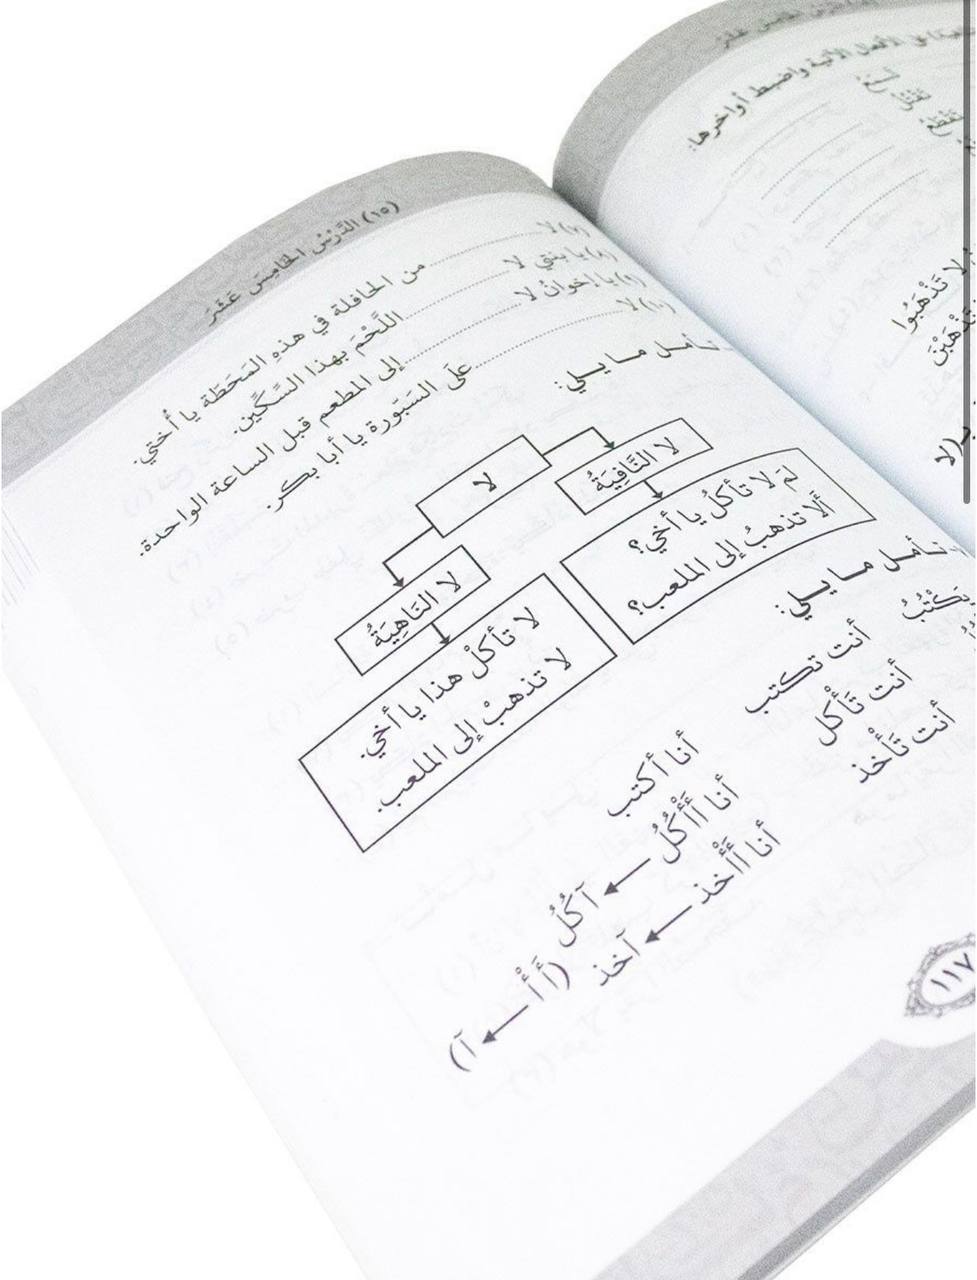 (١٥) الدَّرْسُ الخَامِسَ عَشَرَ
(٧) لا .......... من الحافلة في هذهِ المَحَطَّة يا أُختي.
(٨) يا بنتي لا .......... اللَّحْمَ بهذا السِّكِّين.
(٩) يا إخوانُ لا .......... إلى المطعم قبل الساعة الواحدة.
(١٠) لا .......... على السَبّورة يا أبا بكر.
تأمل ما يلي:
لا
لا النَّافِيَةُ
لمَ لا تأكلُ يا أخي؟
ألا تذهبُ إلى الملعب؟
لا النَاهِيَةُ
لا تأكلْ هذا يا أخي.
لا تذهبْ إلى الملعب.
تأمل ما يلي:
يَكْتُبُ أنت تكتب أنا أكتب
أنت تَأْكل أنا أَأْكُلُ ← آكُلُ
أنت تَأْخذ أنا أَأْخذ ← آخذ (أَ أْ ← آ)
١١٧
الأفعال الآتية واضبط أواخرها:
لا تَذْهَبُوا